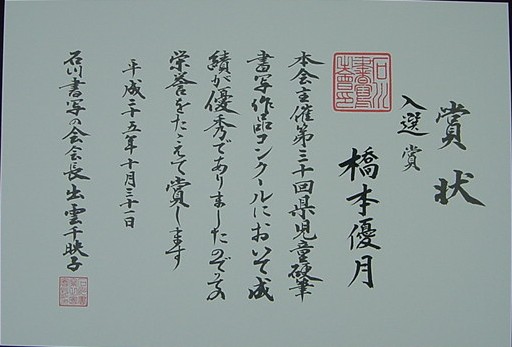 賞状
入選賞
橋本優月
本会主催第三十回県児童硬筆
書写作品コンクールにおいて成
績が優秀でありましたのでその
栄誉をたたえて賞します
平成二十五年十月三十一日
石川書写の会会長 出雲千映子